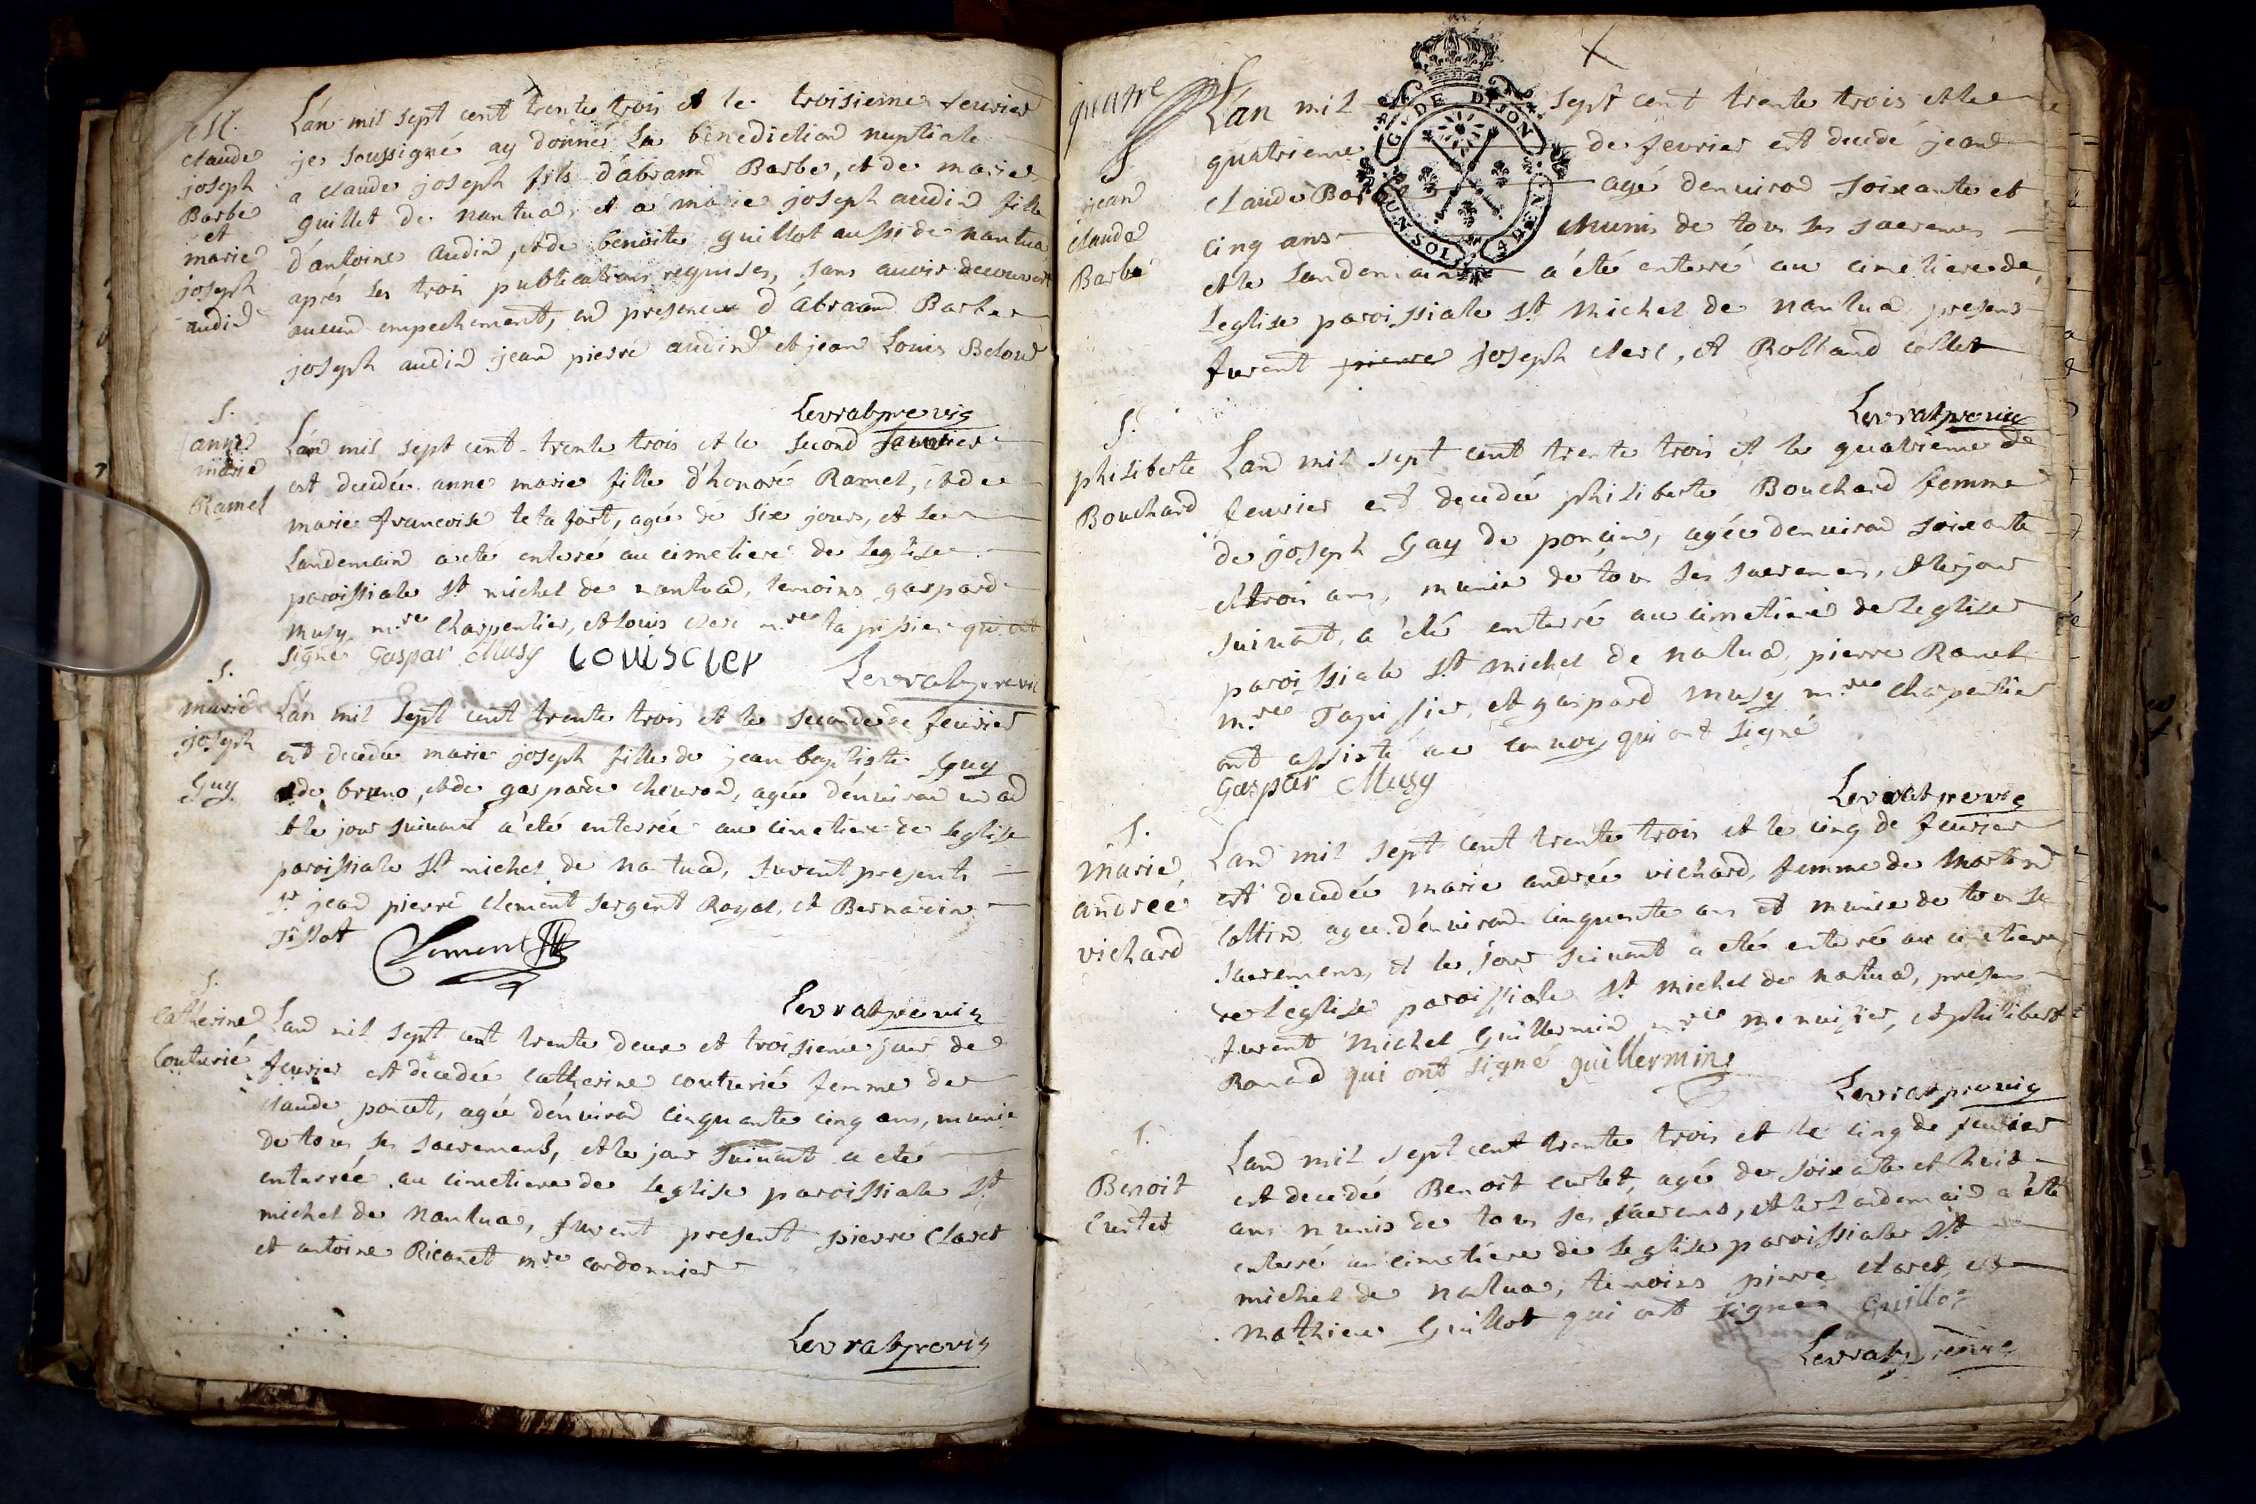 M.
claude
joseph
Barbe
et
marie
joseph
audin
L'an mil sept cent trente trois et le troisieme feurier
je soussigné ay donné la benediction nuptiale
a claude joseph fils d'abraam Barbe, et de marie
guillet de nantua, et a marie joseph audin fille
d'antoine audin, et de benoite guillot aussi de nantua
aprés les trois publications requises, sans auoir decouuert
aucun empechement, en presence d'abraam Barbe
joseph audin jean pierre audin et jean Louis Beloud
Levrat
S.
anne
marie
Ramel
L'an mil sept cent trente trois et le second
est decedée anne marie fille d'honoré Ramel, et de
marie francoise tetafort, agée de six jours, et le
landemain a eté enterré au cimetiere de leglise
paroissiale st michel de nantua, temoins gaspard
musy mre charpentier, et louis clerc mre tapissier qui ont
signé Gaspar Musy Louis Cler
Levrat
S.
marie
joseph
Guy
L'an mil sept cent trente trois et le second de feurier
est decedée marie joseph fille de jean baptiste Guy
de bruno, et de gasparde cheuron, agée d'enuiron un an
et le jour suiuant a eté enterrée au cimetiere de leglise
paroissiale st michel de nantua, furent presents
sr jean pierre clement sergent Royal, et Bernardin
Tissot
Clement
Levrat
S.
Catherine
Couturié
Lan mil sept cent trente deux et troisieme jour de
feurier est decedée catherine couturié femme de
claude poncet, agée d'enuiron cinquante cinq ans, munie
de tous ses sacremens, et le jour suiuant a eté
enterrée au cimetiere de leglise paroissiale st
michel de nantua, furent present pierre Claret
et antoine Ricanet mre cordonnier
Levrat
quatre
S
jean
claude
Barbe
G. DE DIJON
UN SOL 4 DEN
L'an mil sept cent trente trois et le
quatrieme de feurier est decedé jean
claude Barbe agé denuiron soixante et
cinq ans munis de tous ses sacremens
et le landemain a été enterré au cimetiere de
leglise paroissiale st michel de nantua presens
furent pierre joseph clerc, et Rolland collet
Levrat
S.
philiberte
Bouchard
Lan mil sept cent trente trois et le quatrieme de
feurier est decedée philiberte Bouchard femme
de joseph Gay de poncin, agée denuiron soixante
et trois ans, munie de tous ses sacremens, et le jour
suiuant, a eté enterré au cimetiere de leglise
paroissiale st michel de natua, pierre Ramel
mre Tapissier, et gaspard musy mre charpentier
ont assisté au conuoy qui ont signé
Gaspar Musy
Levrat
S.
marie
andrée
vichard
Lan mil sept cent trente trois et le cinq de feurier
est decedée marie andrée vichard, femme de Martin
Collin agée d'enuiron cinquante ans et munie de tous se
sacremens, et le jour suiuant a eté enterré au cimetiere
de leglise paroissiale st michel de natua, presens
furent michel Guillermin mre menuisier, et philibert
Ronad qui ont signé guillermin
Levrat
S.
Benoit
Curtet
Lan mil sept cent trente trois et le cinq de feurier
est decedée Benoit curtet, agé de soixante et huit
ans munis de tous ses sacremens, et le landemain a eté
enterré au cimetiere de leglise paroissiale st
michel de natua, temoins pierre claret, et
mathieu Guillot qui ont signés Guillot
Levrat